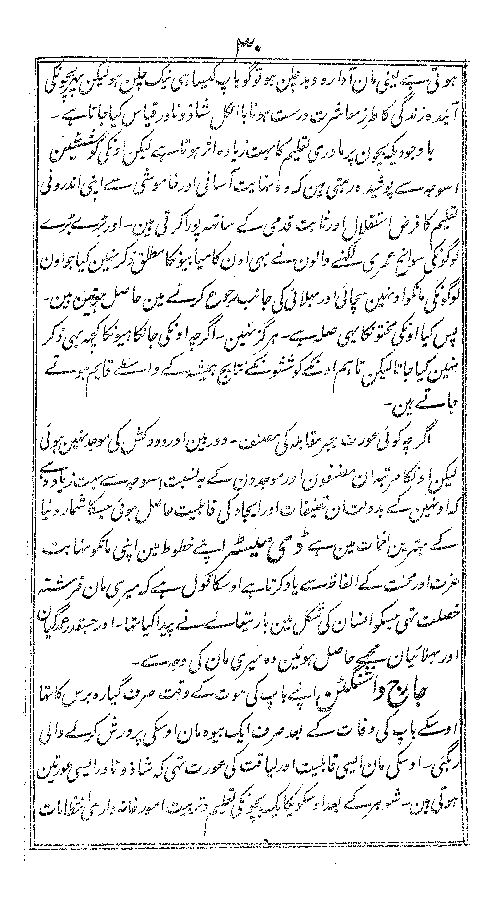 ۳۰
ہوتی ہے یعنی مان آوارہ و بد چلن ہو تو گو باپ کیسا ہی نیک چلن ہو لیکن بچہ کی
آیندہ زندگی کا طرز معاشرت درست ہونا بالکل شاذ و نادر قیاس کیا جاتا ہے ۔
باوجودیکہ بچون پر مادری تعلیم کا بہت زیادہ اثر ہوتا ہے لیکن اونکی کوششین
اسوجہ سے پوشیدہ رہتی ہین کہ وہ نہایت آسانی اور خاموشی سے اپنی اندرونی
تعلیم کا فرض استقلال اور ثابت قدمی کے ساتھ پورا کرتی ہین ۔ اور بڑے بڑے
لوگونکی سوانح عمری لکھنے والون نے بھی اون کامیابیونکا مطلق ذکر نہین کیا جو اون
لوگونکی مانکو اونہین سچائی اور بھلائی کی جانب رجوع کرنے مین حاصل ہوئین ہین ۔
پس کیا اونکی محنتونکا یہی صلہ ہے ۔ ہرگز نہین ۔ اگرچہ اونکی جانکاہیونکا کچھ بھی ذکر
نہین کیا جاتا لیکن تاہم اونکے کوششونکے نتایج ہمیشہ کے واسطے قایم ہوتے
جاتے ہین ۔
اگرچہ کوئی عورت جبر مقابلہ کی مصنف ۔ دوربین اور دودکش کی موجد نہین ہوئی
لیکن اونکا مرتبہ ان مصنفون اور موجدون کے بہ نسبت اسوجہ سے بہت زیادہ ہے
کہ اونہین کے بدولت ان تصنیفات اور ایجاد کی قابلیت حاصل ہوئی جسکا شمار دنیا
کے بہترین مین ہے ڈی میسٹر اپنے خطوط مین اپنی مانکو نہایت
عزت اور محبت کے الفاظ سے یاد کرتا ہے اوسکا قول ہے کہ میری مان فرشتہ
خصلت تھی جسکو انسان کی شکل مین باریتعالے نے پیدا کیا تھا ۔ اور جسقدر
اور بھلائیان مجھے حاصل ہوئین وہ میری مان کی وجہ سے ۔
جارج واشنگٹن اپنے باپ کی موت کے وقت صرف گیارہ برس کا تھا
اوسکے باپ کی وفات کے بعد صرف ایک بیوہ مان اوسکی پرورش کرنے والی
رہگئی ۔ اوسکی مان ایسی قابلیت اور لیاقت کی عورت تھی کہ شاذ و نادر ایسی عورتین
ہوتی ہین ۔ شوہر کے بعد اوسکو یکایک بچونکی تعلیم و تربیت امور خانہ داری انتظامات